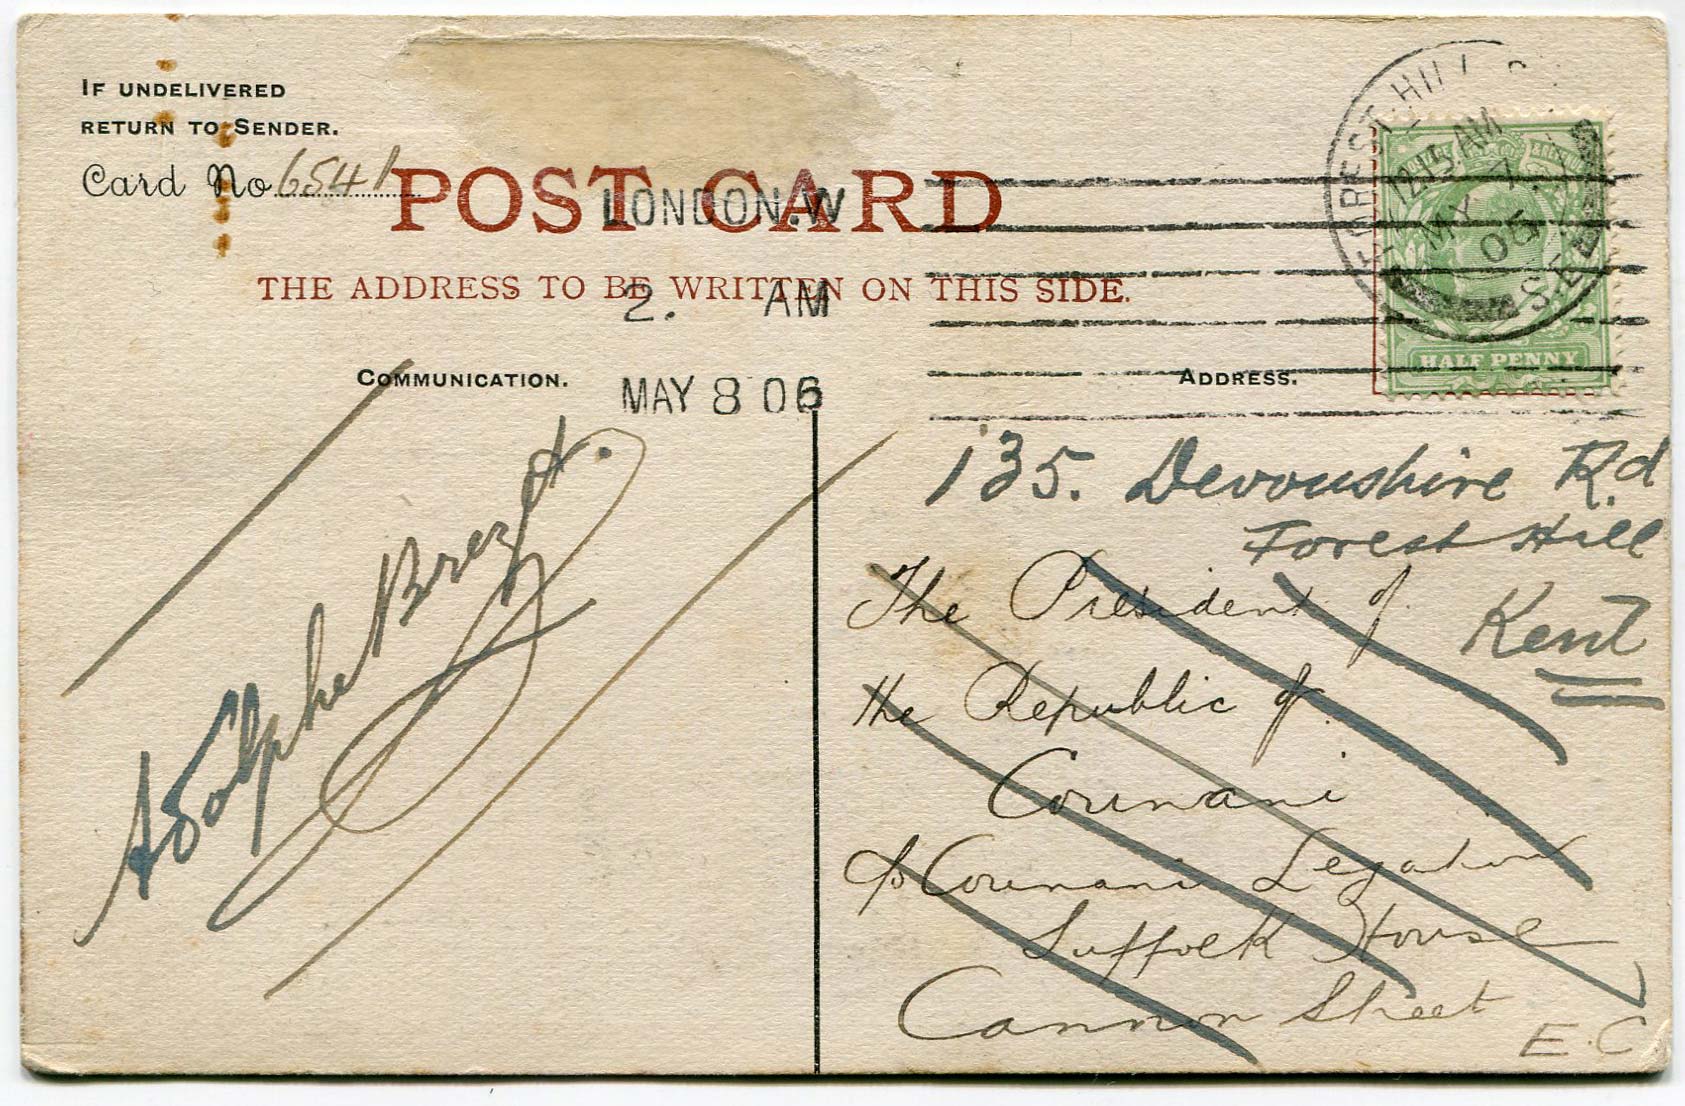 IF UNDELIVERED
RETURN TO SENDER.
Card No 6541
POST CARD
THE ADDRESS TO BE WRITTEN ON THIS SIDE.
LONDON.W
2. AM
MAY 8 06
FOREST HILL
12.15 AM
MY 7
06
S.E.
HALF PENNY
COMMUNICATION.
ADDRESS.
Adolphe Brezet.
135. Devonshire Rd
Forest Hill
Kent
The President of
the Republic of
Counani
c/o Counani Legation
Suffolk House
Cannon Street
E.C